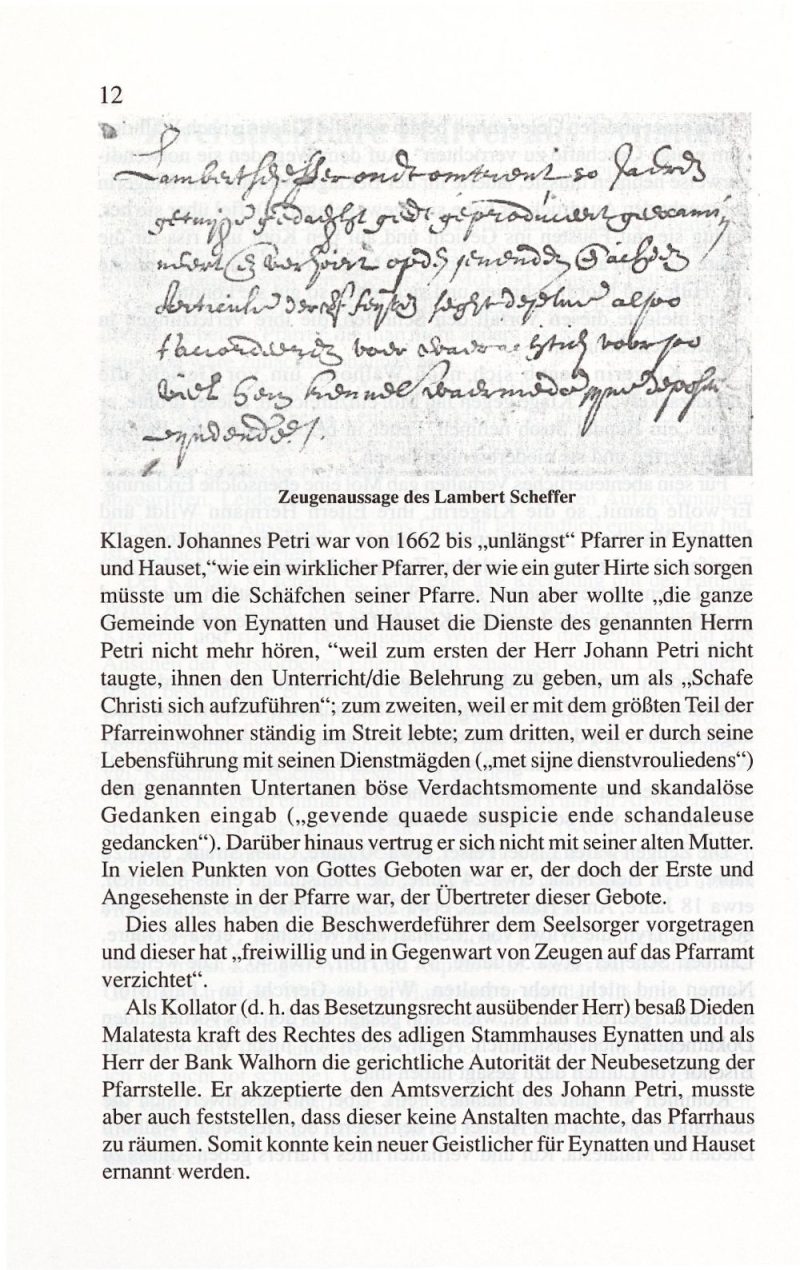 12
Lambert Scheffer ondt omtrent 50 Jaeren
getuijge gedacht geproduceert geexami
neert verhoirt op
Articule seght deselve alsoo
voer voor soo
viel hem
Zeugenaussage des Lambert Scheffer
Klagen. Johannes Petri war von 1662 bis „unlängst“ Pfarrer in Eynatten
und Hauset,“wie ein wirklicher Pfarrer, der wie ein guter Hirte sich sorgen
müsste um die Schäfchen seiner Pfarre. Nun aber wollte „die ganze
Gemeinde von Eynatten und Hauset die Dienste des genannten Herrn
Petri nicht mehr hören, “weil zum ersten der Herr Johann Petri nicht
taugte, ihnen den Unterricht/die Belehrung zu geben, um als „Schafe
Christi sich aufzuführen“; zum zweiten, weil er mit dem größten Teil der
Pfarreinwohner ständig im Streit lebte; zum dritten, weil er durch seine
Lebensführung mit seinen Dienstmägden („met sijne dienstvrouliedens“)
den genannten Untertanen böse Verdachtsmomente und skandalöse
Gedanken eingab („gevende quaede suspicie ende schandaleuse
gedancken“). Darüber hinaus vertrug er sich nicht mit seiner alten Mutter.
In vielen Punkten von Gottes Geboten war er, der doch der Erste und
Angesehenste in der Pfarre war, der Übertreter dieser Gebote.
Dies alles haben die Beschwerdeführer dem Seelsorger vorgetragen
und dieser hat „freiwillig und in Gegenwart von Zeugen auf das Pfarramt
verzichtet“.
Als Kollator (d. h. das Besetzungsrecht ausübender Herr) besaß Dieden
Malatesta kraft des Rechtes des adligen Stammhauses Eynatten und als
Herr der Bank Walhorn die gerichtliche Autorität der Neubesetzung der
Pfarrstelle. Er akzeptierte den Amtsverzicht des Johann Petri, musste
aber auch feststellen, dass dieser keine Anstalten machte, das Pfarrhaus
zu räumen. Somit konnte kein neuer Geistlicher für Eynatten und Hauset
ernannt werden.